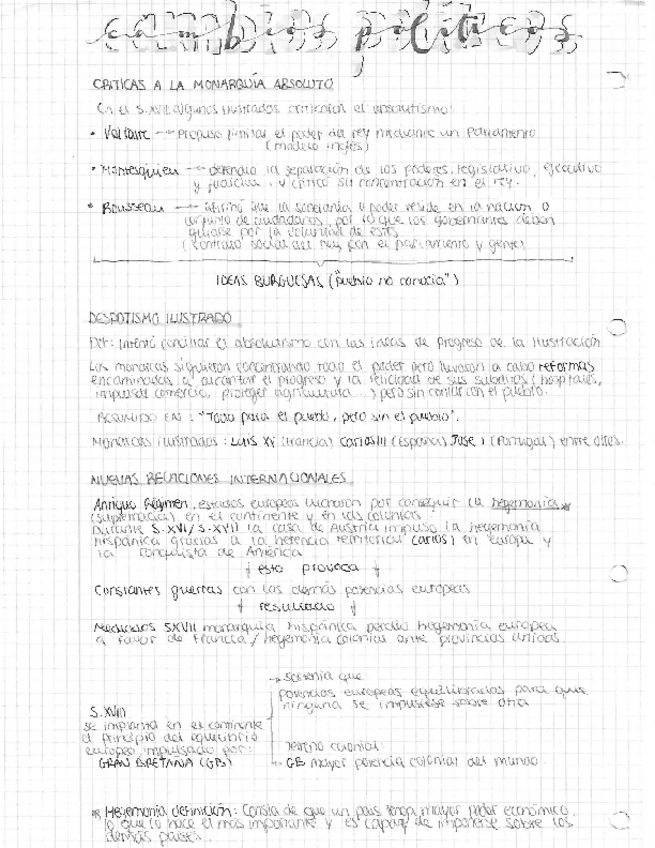 cambios políticos
CRITICAS A LA MONARQUÍA ABSOLUTO
En el S.XVIII algunos ilustrados criticaron el absolutismo:
• Voltaire → Propuso limitar el poder del rey mediante un Parlamento
(modelo inglés)
• Montesquieu → defendió la separación de los poderes: legislativo, ejecutivo
y judicial, y criticó su concentración en el rey.
• Rousseau → afirmó que la soberanía o poder reside en la nación o
conjunto de ciudadanos, por lo que los gobernantes deben
guiarse por la voluntad de estos
(contrato social del rey con el parlamento y gente)
IDEAS BURGUESAS ("pueblo no conocía")
DESPOTISMO ILUSTRADO
Def: Intentó conciliar el absolutismo con las ideas de progreso de la Ilustración
Los monarcas siguieron concentrando todo el poder pero llevaron a cabo reformas
encaminadas a alcanzar el progreso y la felicidad de sus súbditos (hospitales,
impulsar comercio, proteger agricultura...) pero sin contar con el pueblo.
RESUMIDO EN: "Todo para el pueblo, pero sin el pueblo".
Monarcas ilustrados: Luis XV (Francia) Carlos III (España) Jose I (Portugal) entre otros.
NUEVAS RELACIONES INTERNACIONALES
Antiguo Régimen, estados europeos lucharon por conseguir la hegemonía*
(supremacía) en el continente y en las colonias.
Durante S.XVI/S.XVII la casa de Austria impuso la hegemonía
hispánica gracias a la herencia territorial Carlos I en europa y
la conquista de América
↓ esto provoca ↓
Constantes guerras con las demás potencias europeas
↓ resultado ↓
Mediados SXVII monarquía hispánica perdió hegemonía europea
a favor de Francia/hegemonía colonial ante provincias unidas
→ Sostenía que
potencias europeas equilibradas para que
ninguna se impusiese sobre otra
S.XVIII
se implanta en el continente
el principio del equilibrio
europeo, impulsado por:
GRAN BRETAÑA (GB)
Terreno colonial:
→ GB mayor potencia colonial del mundo.
* Hegemonía definición: Consta de que un país tenga mayor poder económico,
lo que lo hace el más importante y es capaz de imponerse sobre los
demás países..